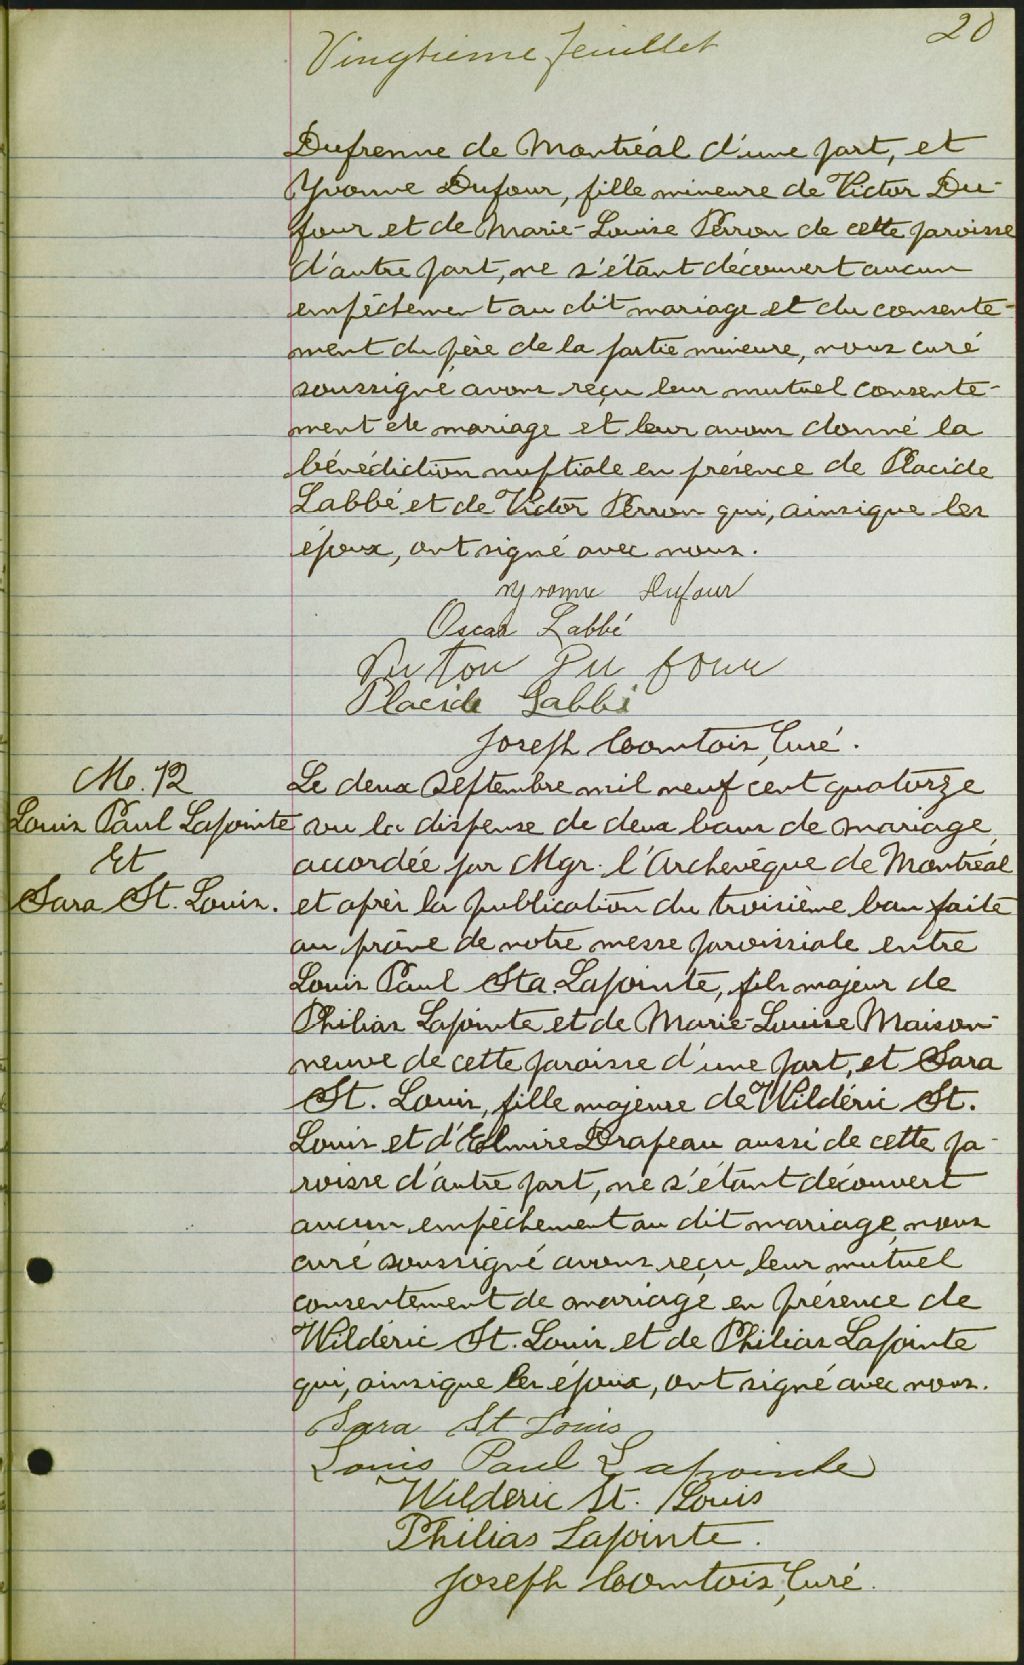 Vingtième feuillet
20
Dufresne de Montréal d'une part, et
Yvonne Dufour, fille mineure de Victor Du-
four et de Marie-Louise Perron de cette paroisse
d'autre part, ne s'étant découvert aucun
empêchement au dit mariage et du consente-
ment du père de la partie mineure, nous curé
soussigné avons reçu leur mutuel consente-
ment de mariage et leur avons donné la
bénédiction nuptiale en présence de Placide
Labbé et de Victor Perron qui, ainsique les
époux, ont signé avec nous.
Yvonne Dufour
Oscar Labbé
Du four
Placide Labbé
Joseph Comtois, Curé.
M. 12
Louis Paul Lapointe
Et
Sara St. Louis.
Le deux Septembre mil neuf cent quatorze
vu la dispense de deux bans de mariage
accordée par Mgr. l'Archevêque de Montréal
et après la publication du troisième ban faite
au prône de notre messe paroissiale entre
Louis Paul Sta. Lapointe, fils majeur de
Philias Lapointe et de Marie-Louise Maison-
neuve de cette paroisse d'une part, et Sara
St. Louis, fille majeure de Wildéric St.
Louis et d'Elmire Drapeau aussi de cette pa-
roisse d'autre part, ne s'étant découvert
aucun empêchement au dit mariage, nous
curé soussigné avons reçu leur mutuel
consentement de mariage en présence de
Wildéric St. Louis et de Philias Lapointe
qui, ainsique les époux, ont signé avec nous.
Sara St Louis
Louis Paul Lapointe
Wilderic St. Louis
Philias Lapointe.
Joseph Comtois, Curé.